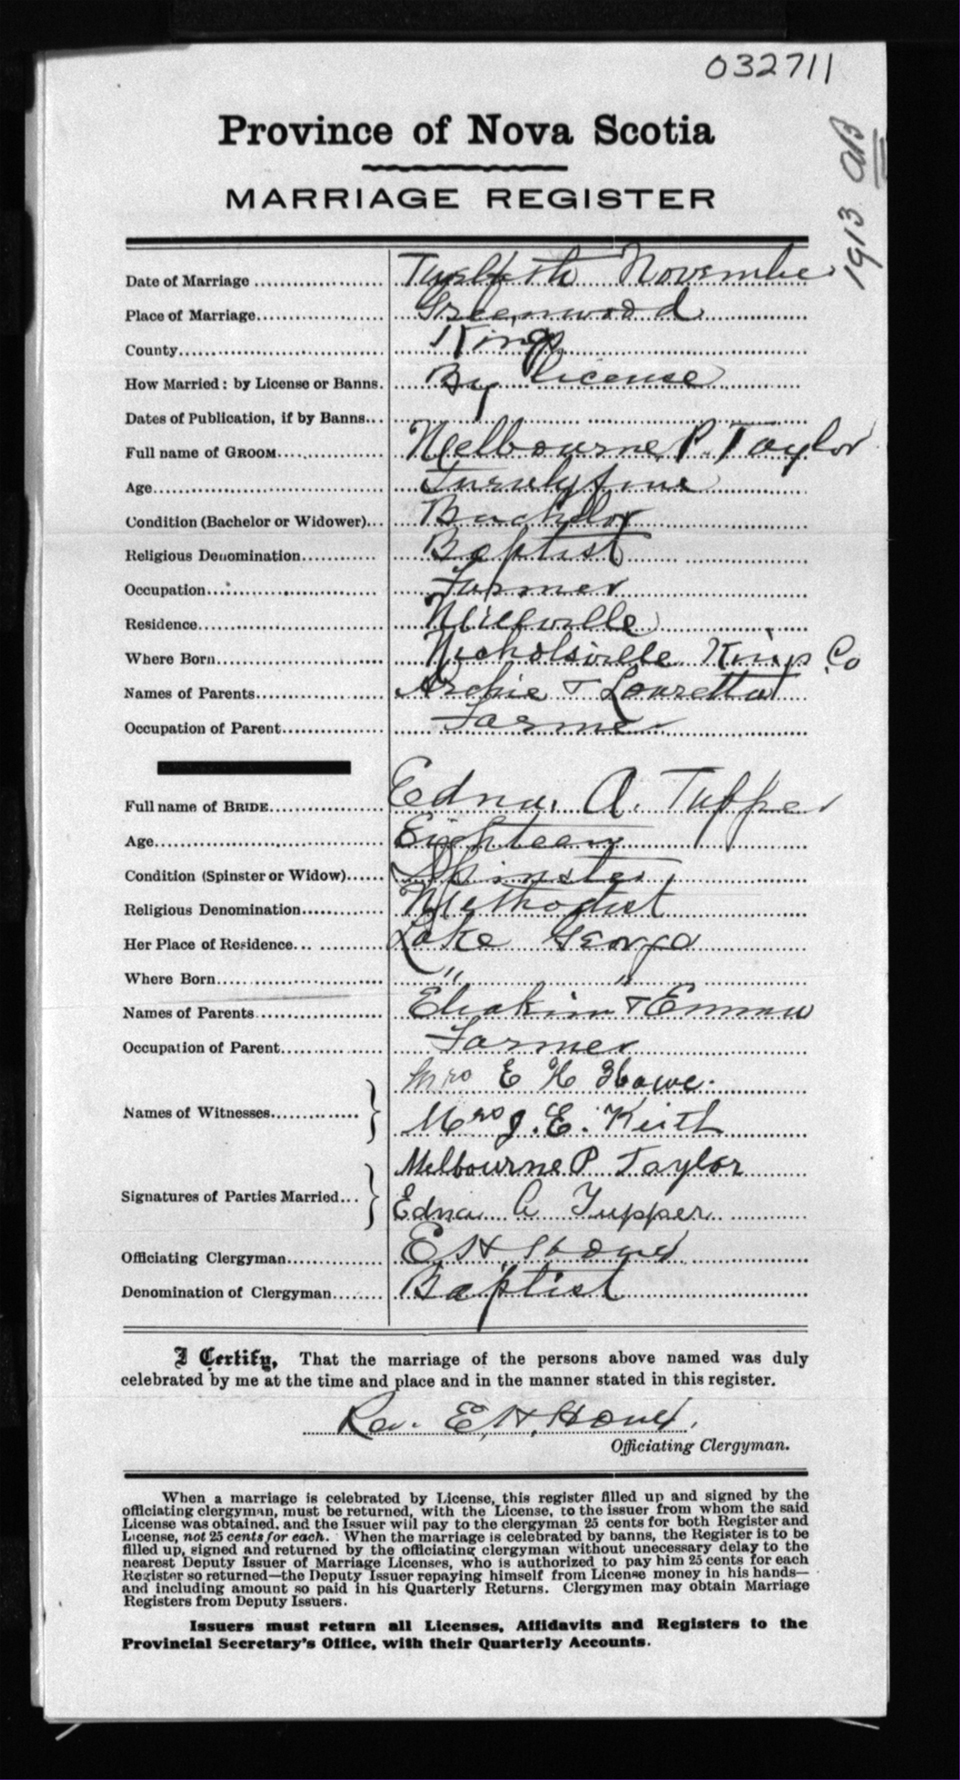 032711
1913 AB
Province of Nova Scotia
MARRIAGE REGISTER
Date of Marriage Twelfth Novembe
Place of Marriage Greenwood
County Kings
How Married: by License or Banns. By license
Dates of Publication, if by Banns
Full name of GROOM Melbourne P. Taylor
Age
Condition (Bachelor or Widower) Bachelor
Religious Denomination Baptist
Occupation Farmer
Residence Millville
Where Born Nicholsville Kings Co
Names of Parents Archie + Louretta
Occupation of Parent Farmer
Full name of BRIDE Edna. A. Tupper
Age Eighteen
Condition (Spinster or Widow) Spinster
Religious Denomination Methodist
Her Place of Residence Lake George
Where Born " "
Names of Parents Eliakim + Emma
Occupation of Parent Farmer
Mrs E H Howe.
Names of Witnesses
Mrs J. E. Keith
Melbourne P Taylor
Signatures of Parties Married
Edna A Tupper
Officiating Clergyman E H Howe
Denomination of Clergyman Baptist
I Certify, That the marriage of the persons above named was duly
celebrated by me at the time and place and in the manner stated in this register.
Rev. E. H. Howe.
Officiating Clergyman.
When a marriage is celebrated by License, this register filled up and signed by the
officiating clergyman, must be returned, with the License, to the issuer from whom the said
License was obtained. and the Issuer will pay to the clergyman 25 cents for both Register and
License, not 25 cents for each. When the marriage is celebrated by banns, the Register is to be
filled up, signed and returned by the officiating clergyman without unecessary delay to the
nearest Deputy Issuer of Marriage Licenses, who is authorized to pay him 25 cents for each
Register so returned—the Deputy Issuer repaying himself from License money in his hands—
and including amount so paid in his Quarterly Returns. Clergymen may obtain Marriage
Registers from Deputy Issuers.
Issuers must return all Licenses, Affidavits and Registers to the
Provincial Secretary's Office, with their Quarterly Accounts.